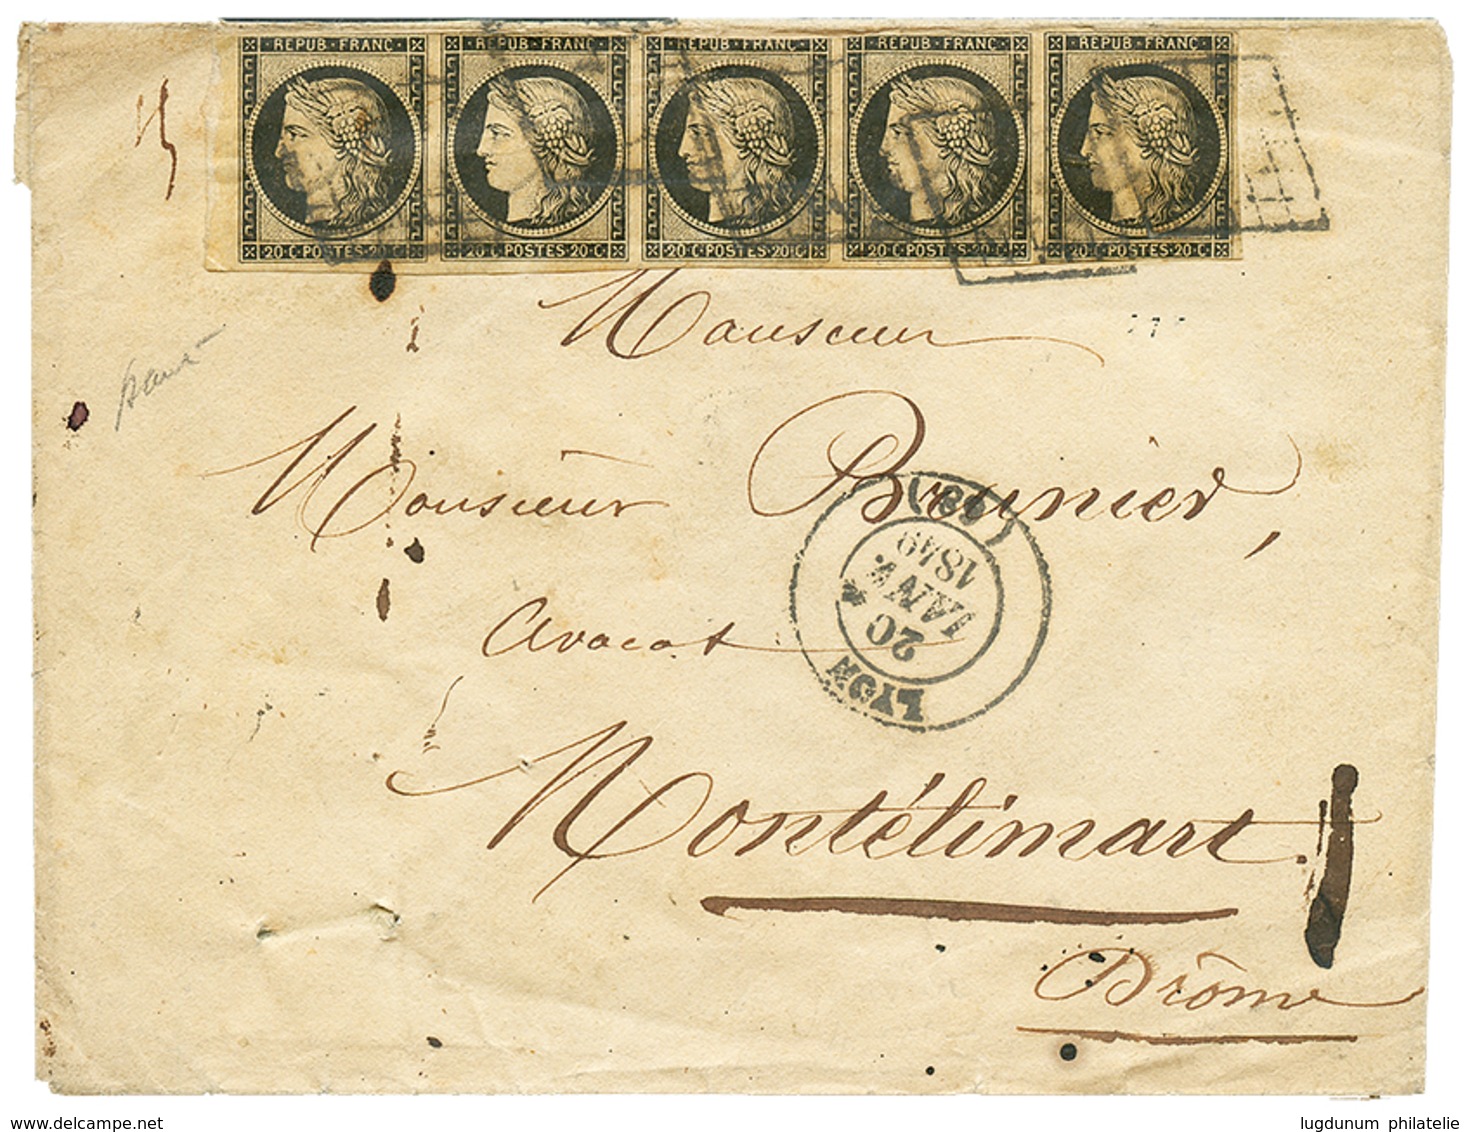 REPUB·FRANC· REPUB·FRANC· REPUB·FRANC· REPUB·FRANC· REPUB·FRANC·
20·C·POSTES·20·C· 20·C·POSTES·20·C· 20·C·POSTES·20·C· 20·C·POSTES·20·C· 20·C·POSTES·20·C·
Monsieur
Monsieur Brunier,
Avocat
LYON
20
JANV.
1849
(68)
Montélimart.
Drôme
www.delcampe.net
lugdunum philatelie